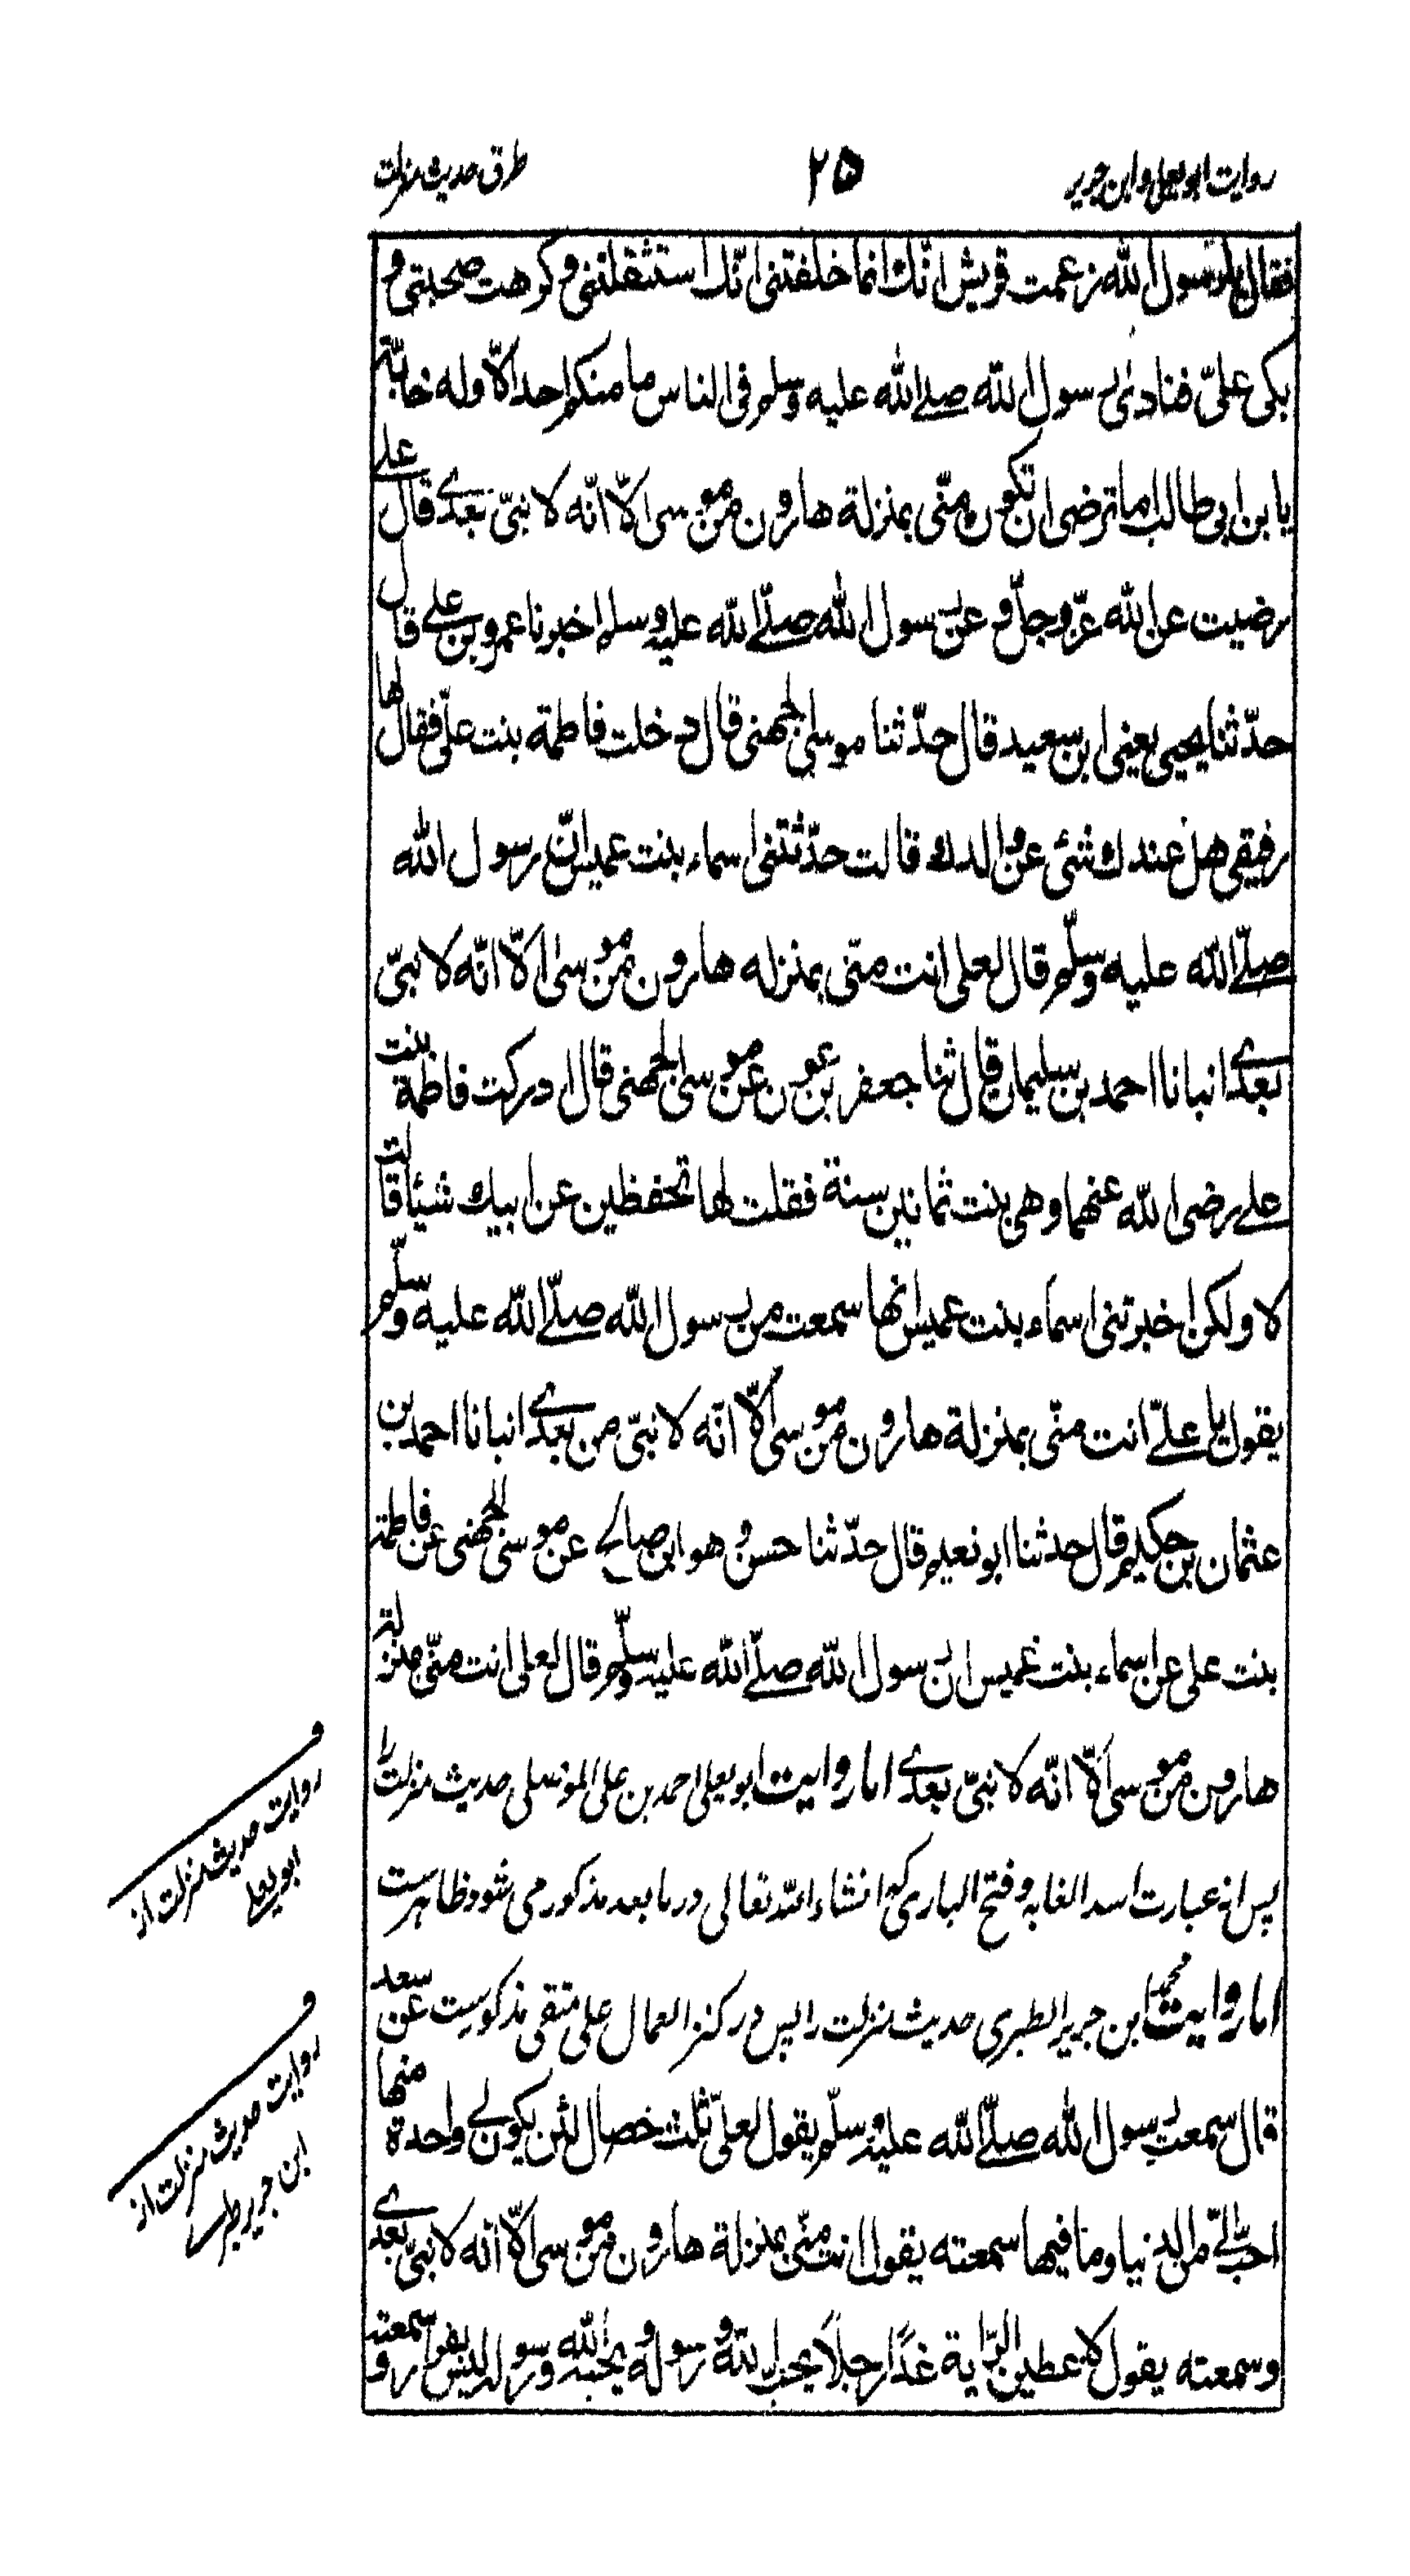 روایت ابو یعلی و ابن جریر
۲۵
طرق حدیث منزلت
فقال یا رسول الله زعمت قریش انّك انما خلفتنی انّك استثقلتنی و کرهت صحبتی و
بکی علیّ فنادی رسول الله صلی الله علیه وسلم فی الناس ما منکم احد الّا وله خابّة
یا بن ابی طالب اما ترضی ان تکون منّی بمنزلة هارون من موسی الّا انّه لا نبیّ بعدی قال علی
رضیت عن الله عزّ وجلّ و عن رسول الله صلّی الله علیه وسلم اخبرنا عمرو بن علی قال
حدّثنا یحیی یعنی ابن سعید قال حدّثنا موسی الجهنی قال دخلت فاطمة بنت علیّ فقال لها
رفیقی هل عندك شئی عن والدك قالت حدّثتنی اسماء بنت عمیس انّ رسول الله
صلّی الله علیه وسلّم قال لعلی انت منّی بمنزله هارون من موسی الّا انّه لا نبیّ
بعدی انبانا احمد بن سلیمان قال ثنا جعفر بن عون عن موسی الجهنی قال ادرکت فاطمة بنت
علی رضی الله عنهما وهی بنت ثمانین سنة فقلت لها تحفظین عن ابیك شیئا قالت
لا ولکن اخبرتنی اسماء بنت عمیس انها سمعت من رسول الله صلّی الله علیه وسلّم
یقول یا علیّ انت منّی بمنزلة هارون من موسی الّا انّه لا نبیّ من بعدی انبانا احمد بن
عثمان بن حکیم قال حدثنا ابو نعیم قال حدّثنا حسن و هو ابن صالح عن موسی الجهنی عن فاطمة
بنت علی عن اسماء بنت عمیس ان رسول الله صلّی الله علیه وسلّم قال لعلی انت منّی منزلة
هارون من موسی الّا انّه لا نبیّ بعدی اما روایت ابو یعلی احمد بن علی الموصلی حدیث منزلت را
پس از عبارت اسد الغابه و فتح الباری که انشاء الله تعالی در ما بعد مذکور می شود ظاهرست
اما روایت محمد ابن جریر الطبری حدیث منزلت را پس در کنز العمال علی متقی مذکورست عن سعد
قال سمعت رسول الله صلّی الله علیه وسلّم یقول لعلیّ ثلث خصال لئن یکون لی واحدة منها
احبّ الیّ من الدنیا وما فیها سمعته یقول انت منّی بمنزلة هارون من موسی الّا انّه لا نبیّ بعدی
وسمعته یقول لاعطین الرّایة غدًا رجلًا یحبّ الله و رسوله و یحبه الله و رسوله لیس بفرار و سمعته
روایت حدیث منزلت از
ابو یعلی
روایت حدیث منزلت از
ابن جریر طبری